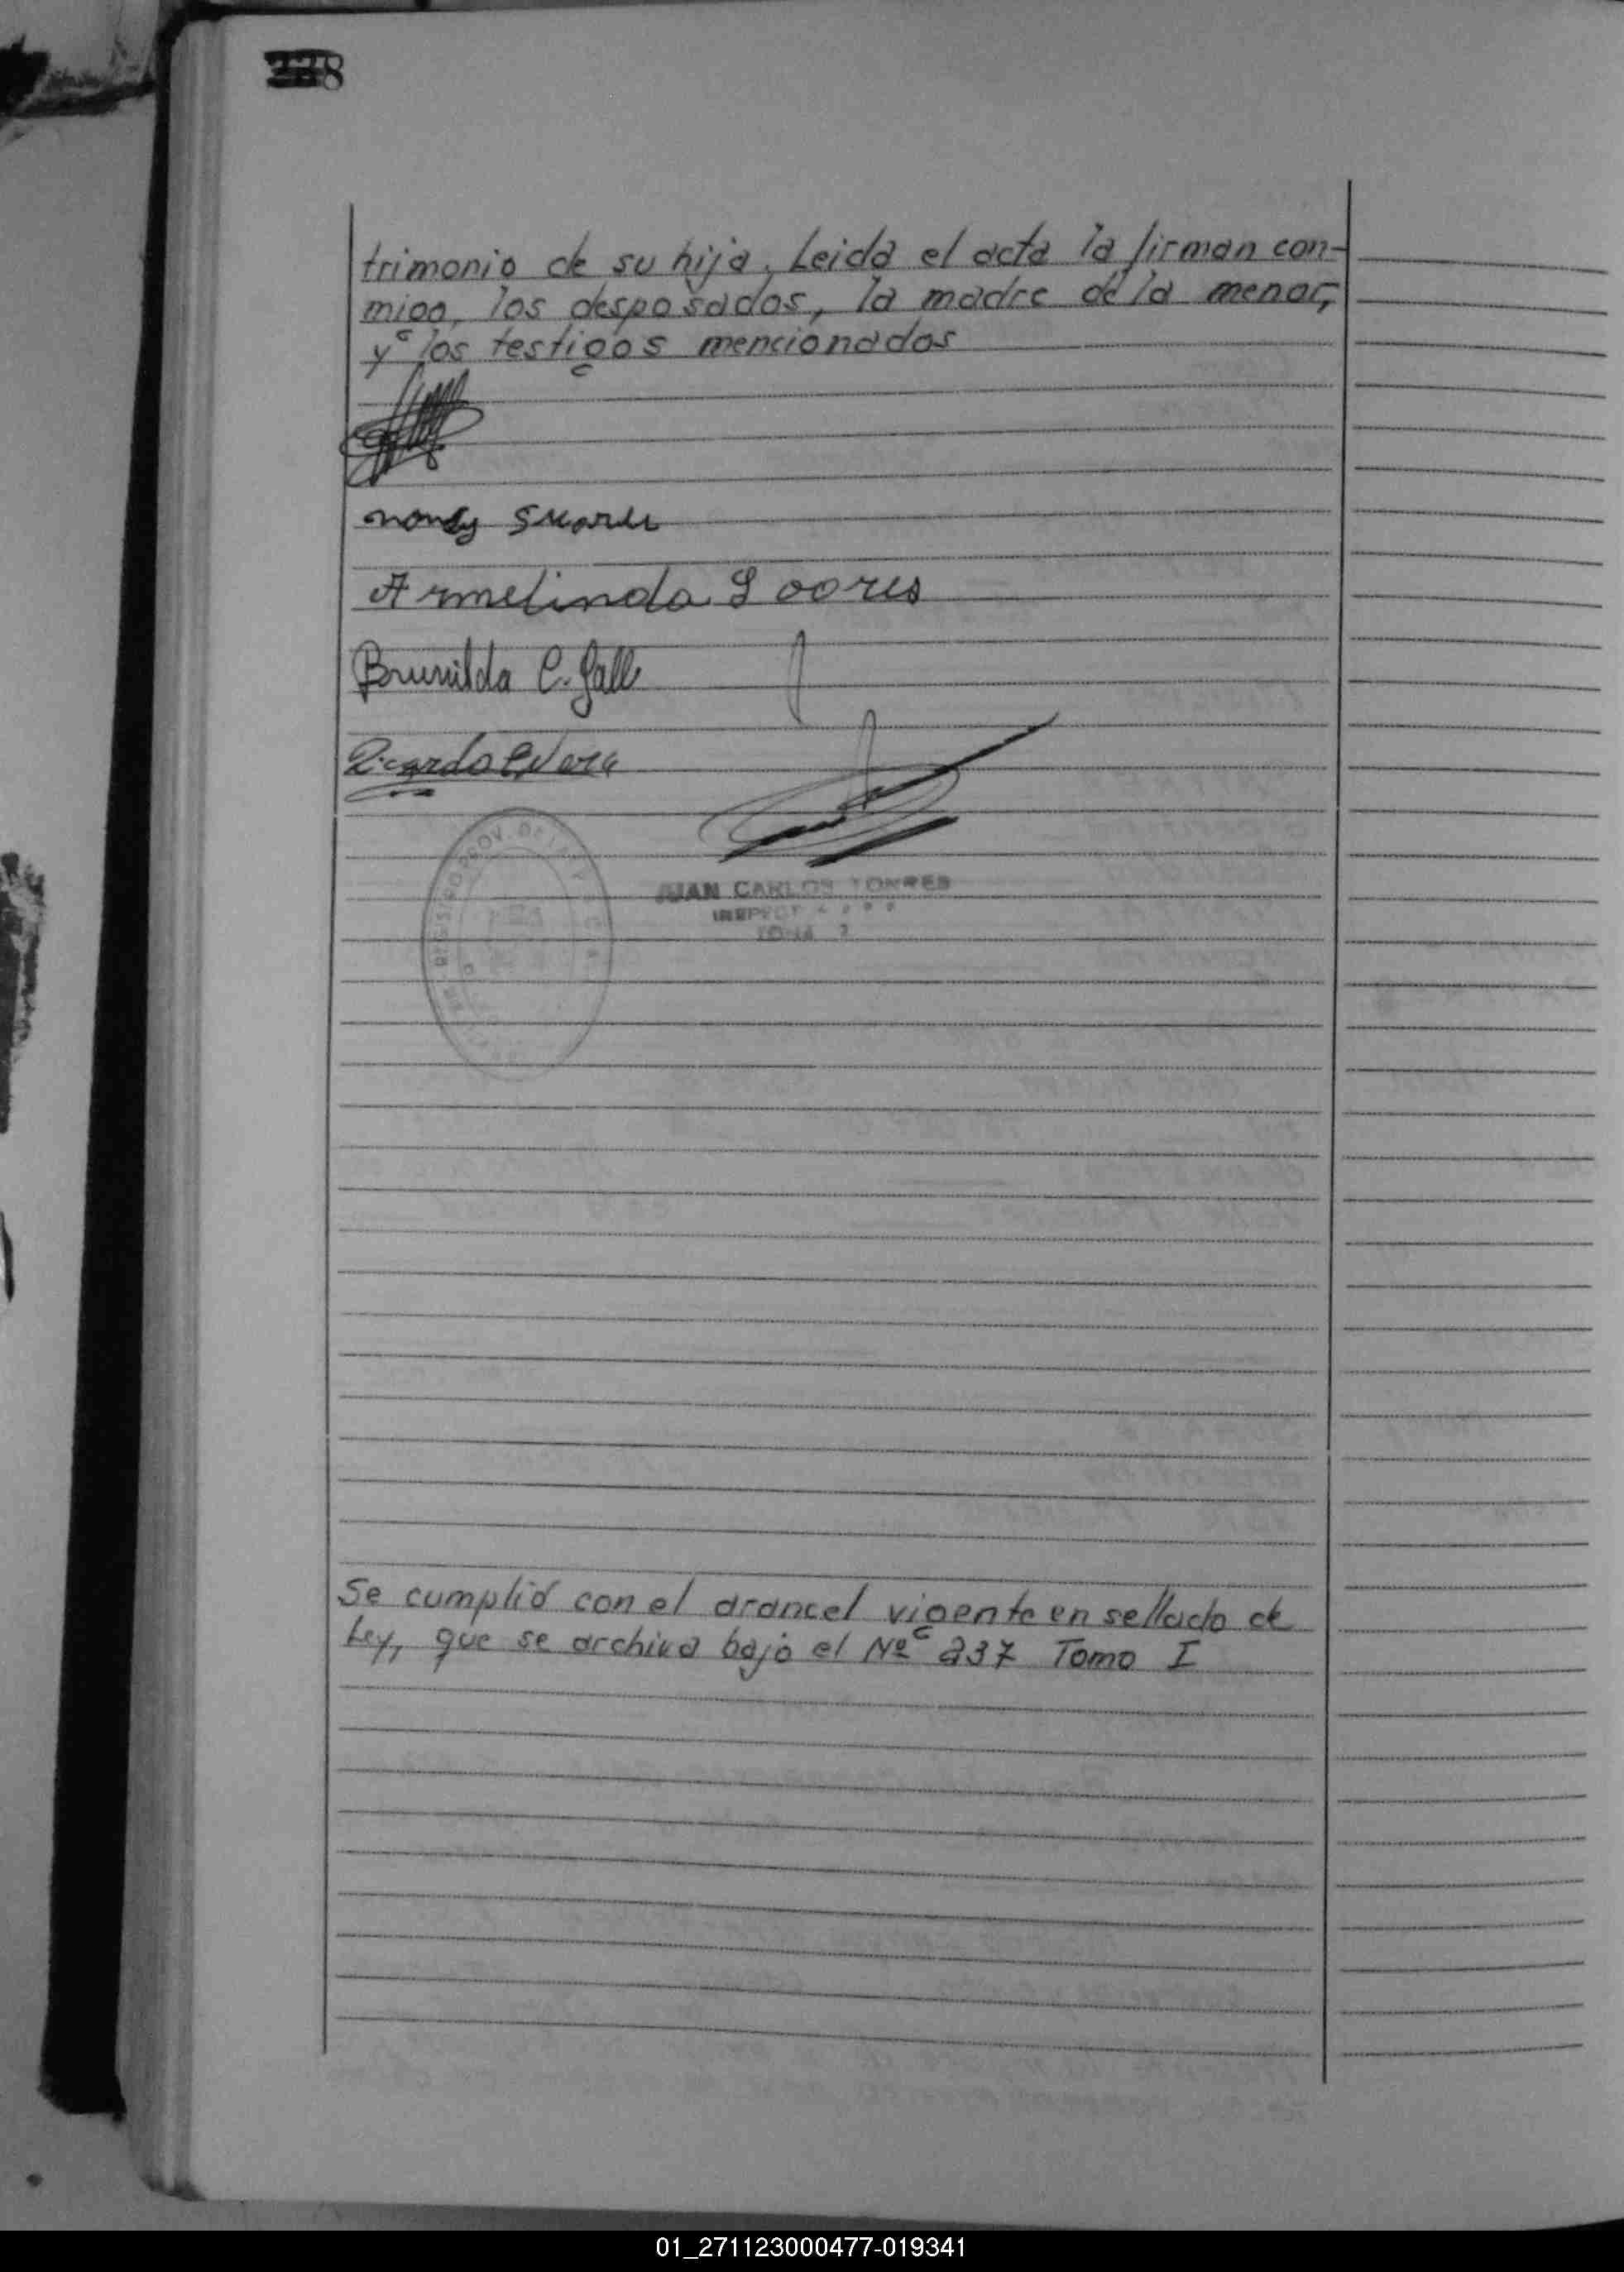 8
trimonio de su hija. Leida el acta la firman con-
migo, los desposados, la madre de la menor,
y los testigos mencionados
Nancy Suarez
Armelinda Loores
Brunilda C. Galli
Ricardo Vera
PROV. DE
JUAN CARLOS TORRES
INSPECTOR
ZONA 2
Se cumplió con el arancel vigente en sellado de
Ley, que se archiva bajo el Nº 237 Tomo I
01_271123000477-019341